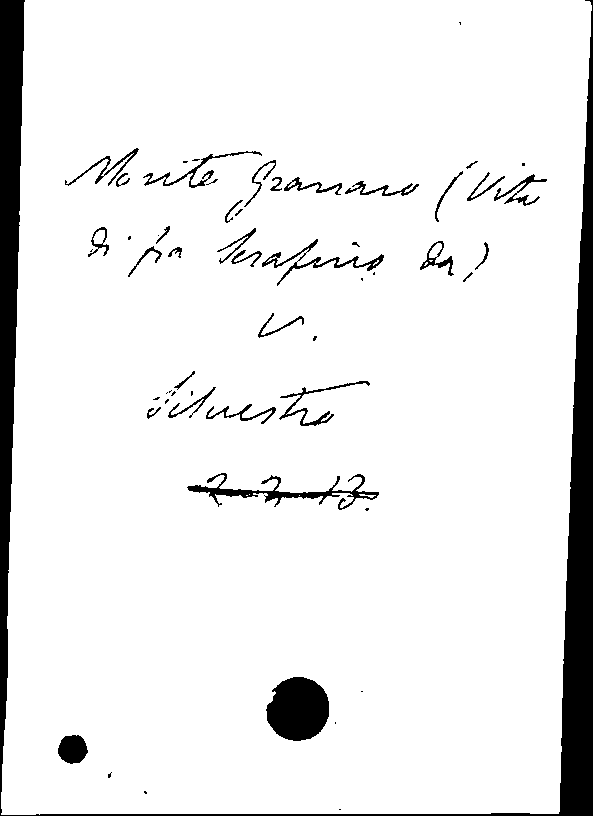 Monte Granaro (Vita
di fra Serafino da)
V.
Silvestro
2-2-13.